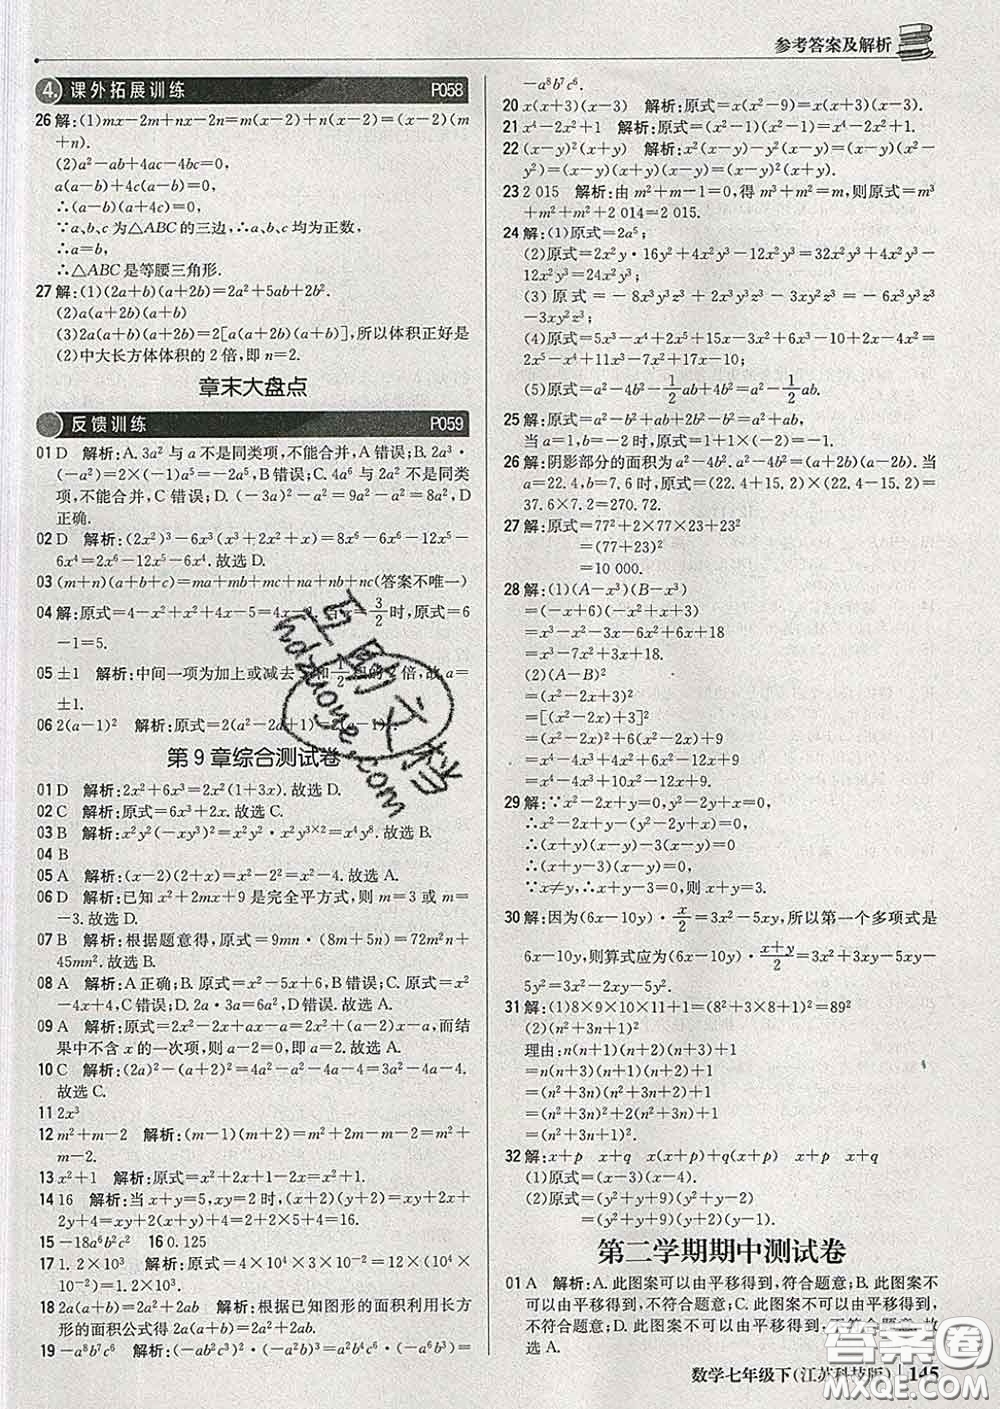 参考答案及解析
4. 课外拓展训练 P058
26 解:(1)mx－2m＋nx－2n＝m(x－2)＋n(x－2)＝(x－2)(m
＋n).
(2)a²－ab＋4ac－4bc＝0,
a(a－b)＋4c(a－b)＝0,
∴(a－b)(a＋4c)＝0,
∵a、b、c为△ABC的三边,∴a、b、c均为正数,
∴a＝b,
∴△ABC是等腰三角形.
27 解:(1)(2a＋b)(a＋2b)＝2a²＋5ab＋2b².
(2)a(a＋2b)(a＋b)
(3)2a(a＋b)(a＋2b)＝2[a(a＋2b)(a＋b)],所以体积正好是
(2)中大长方体体积的2倍,即n＝2.
章末大盘点
反馈训练 P059
01 D 解析:A. 3a² 与 a 不是同类项,不能合并,A错误;B. 2a³·
(－a²)＝2×(－1)a⁵＝－2a⁵,B错误;C. 4a⁶ 与 2a² 不是同类
项,不能合并,C错误;D. (－3a)²－a²＝9a²－a²＝8a²,D
正确.
02 D 解析:(2x²)³－6x³(x³＋2x²＋x)＝8x⁶－6x⁶－12x⁵－
6x⁴＝2x⁶－12x⁵－6x⁴.故选D.
03 (m＋n)(a＋b＋c)＝ma＋mb＋mc＋na＋nb＋nc(答案不唯一)
04 解:原式＝4－x²＋x²＋4x－5＝4x－ 3/2 时,原式＝6
－1＝5.
05 ±1 解析:中间一项为加上或减去 和 1/2 的2倍,故a＝
±1.
06 2(a－1)² 解析:原式＝2(a²－2a＋1)
第9章综合测试卷
01 D 解析:2x²＋6x³＝2x²(1＋3x).故选D.
02 C 解析:原式＝6x³＋2x.故选C.
03 B 解析:x²y²(－xy³)²＝x²y²·x²y³ˣ²＝x⁴y⁸.故选B.
04 B
05 A 解析:(x－2)(2＋x)＝x²－2²＝x²－4.故选A.
06 D 解析:已知 x²＋2mx＋9 是完全平方式,则 m＝3 或 m＝
－3.故选D.
07 B 解析:根据题意得,原式＝9mn·(8m＋5n)＝72m²n＋
45mn².故选B.
08 A 解析:A正确;B. 原式＝x²－5x＋6,B错误;C. 原式＝x²
－4x＋4,C错误;D. 2a·3a＝6a²,D错误.故选A.
09 A 解析:原式＝2x²－2x＋ax－a＝2x²＋(a－2)x－a,而结
果中不含x的一次项,则a－2＝0,即a＝2.故选A.
10 C 解析:(2a)²－(a＋2)²＝4a²－a²－4a－4＝3a²－4a－4.
故选C.
11 2x³
12 m²＋m－2 解析:(m－1)(m＋2)＝m²＋2m－m－2＝m²＋m
－2.
13 x²＋1 解析:原式＝x²＋2x＋1－2x＝x²＋1.
14 16 解析:当x＋y＝5,xy＝2时,(x＋2)(y＋2)＝xy＋2x＋
2y＋4＝xy＋2(x＋y)＋4＝2＋2×5＋4＝16.
15 －18a⁶b²c² 16 0.125
17 1.2×10³ 解析:原式＝[(4×3)×(10⁴×10³)]÷10⁵＝12×
10²＝1.2×10³.
18 2a(a＋b)＝2a²＋2ab 解析:根据已知图形的面积利用长方
形的面积公式得 2a(a＋b)＝2a²＋2ab.
19 －a⁸b⁷c⁶ 解析:(－ab²c³)²·(－a²b)³＝a²b⁴c⁶·(－a⁶b³)＝
－a⁸b⁷c⁶.
20 x(x＋3)(x－3) 解析:原式＝x(x²－9)＝x(x＋3)(x－3).
21 x⁴－2x²＋1 解析:原式＝(x²－1)(x²－1)＝x⁴－2x²＋1.
22 (x－y)²(x＋y) 解析:x²(x－y)－y²(x－y)＝(x－y)(x²－
y²)＝(x－y)(x＋y)(x－y)＝(x－y)²(x＋y).
23 2 015 解析:由 m²＋m－1＝0,得 m³＋m²＝m,则原式＝m³
＋m²＋m²＋2 014＝2 015.
24 解:(1)原式＝2a⁵;
(2)原式＝2x²y·16y²＋4x²y³－12x²y³＝32x²y³＋4x²y³－
12x²y³＝24x²y³;
(3)原式＝－8x³y³z³＋2x³y³z³－3xy²z³＝－6x³y³z³
－3xy²z³;
(4)原式＝5x³－x⁴＋2x⁵＋15x－3x²＋6x³＋10－2x＋4x²＝
2x⁵－x⁴＋11x³－7x²＋10x－17x＋10;
(5)原式＝a²－4b²－1/2ab＋4b²＝a²－1/2ab.
25 解:原式＝a²－b²＋ab＋2b²－b²＝a²＋ab.
当a＝1,b＝－2时,原式＝1＋1×(－2)＝－1.
26 解:阴影部分的面积为 a²－4b². a²－4b²＝(a＋2b)(a－2b).当
a＝22.4,b＝7.6时,原式＝(22.4＋15.2)×(22.4－15.2)＝
37.6×7.2＝270.72.
27 解:原式＝77²＋2×77×23＋23²
＝(77＋23)²
＝10 000.
28 解:(1)(A－x³)(B－x³)
＝(－x＋6)(－x²＋x＋3)
＝x³－x²－3x－6x²＋6x＋18
＝x³－7x²＋3x＋18
(2)(A－B)²
＝(x²－2x＋3)²
＝[(x²－2x)＋3]²
＝(x²－2x)²＋6(x²－2x)＋9
＝x⁴－4x³＋4x²＋6x²－12x＋9
＝x⁴－4x³＋10x²－12x＋9
29 解:∵x²－2x＋y＝0,y²－2y＋x＝0,
∴x²－2x＋y－y²＋2y－x＝0,
∴(x＋y)(x－y)－3(x－y)＝0
∴(x＋y－3)(x－y)＝0
∵x≠y,∴x＋y－3＝0,则x＋y＝3.
30 解:因为(6x－10y)·x/2＝3x²－5xy,所以第一个多项式是
6x－10y,则算式应为(6x－10y)·(x＋y)/2＝3x²＋3xy－5xy－
5y²＝3x²－2xy－5y².
31 解:(1)8×9×10×11＋1＝(8²＋3×8＋1)²＝89²
(2)(n²＋3n＋1)²
理由:n(n＋1)(n＋2)(n＋3)＋1
＝n(n＋3)(n＋1)(n＋2)＋1
＝(n²＋3n)(n²＋3n＋2)＋1
＝(n²＋3n)²＋2(n²＋3n)＋1
＝(n²＋3n＋1)².
32 解:x＋p x＋q x(x＋p)＋q(x＋p) x＋p x＋q
(1)原式＝(x－3)(x－4).
(2)原式＝(x²＋y²＋1)(x²＋y²－2)
＝(y²＋y²＋1)(y－1)(y＋2).
第二学期期中测试卷
01 A 解析:A. 此图案可以由平移得到,符合题意;B. 此图案不
可以由平移得到,不符合题意;C. 此图案不可以由平移得到,
不符合题意;D. 此图案不可以由平移得到,不符合题意.故
选A.
数学七年级下(江苏科技版) 145
互助文档
hdzuoye.com
答案圈
MXQE.COM